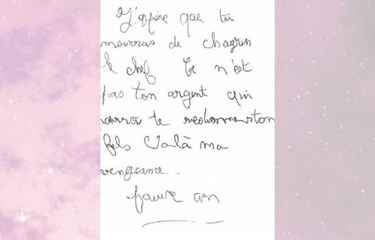 J'espère que tu
mourras de chagrin
le chef Ce n'est
pas ton argent qui
pourra te redonner ton
fils Voilà ma
vengeance.
pauvre con